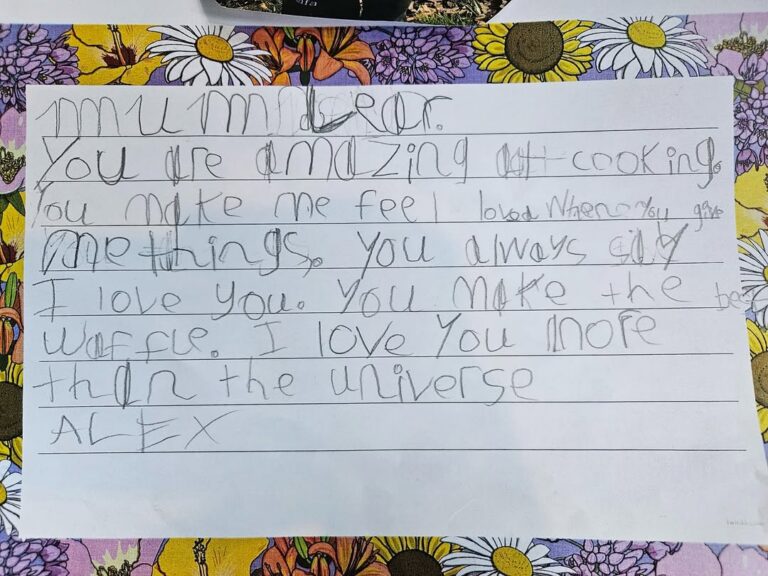 mum Dear.
You are amazing at cooking.
You make me feel loved When You give
me things. You always say
I love you. You make the best
waffle. I love You more
than the universe
ALEX